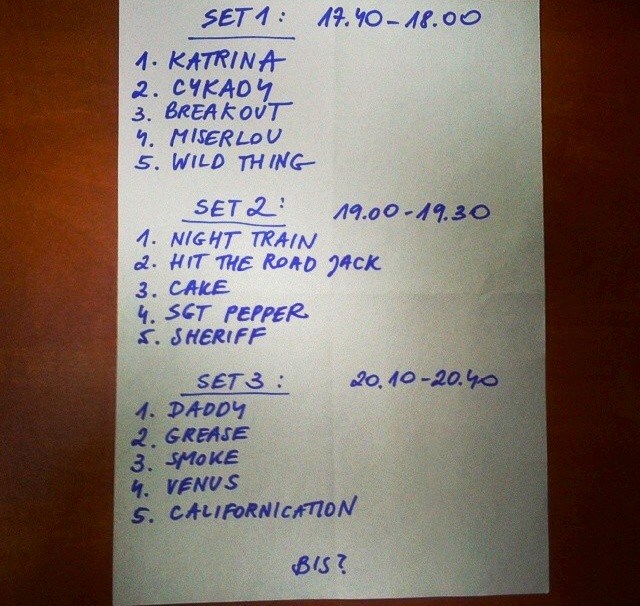 SET 1: 17.40-18.00
1. KATRINA
2. CYKADY
3. BREAKOUT
4. MISERLOU
5. WILD THING
SET 2: 19.00-19.30
1. NIGHT TRAIN
2. HIT THE ROAD JACK
3. CAKE
4. SGT PEPPER
5. SHERIFF
SET 3: 20.10-20.40
1. DADDY
2. GREASE
3. SMOKE
4. VENUS
5. CALIFORNICATION
BIS?